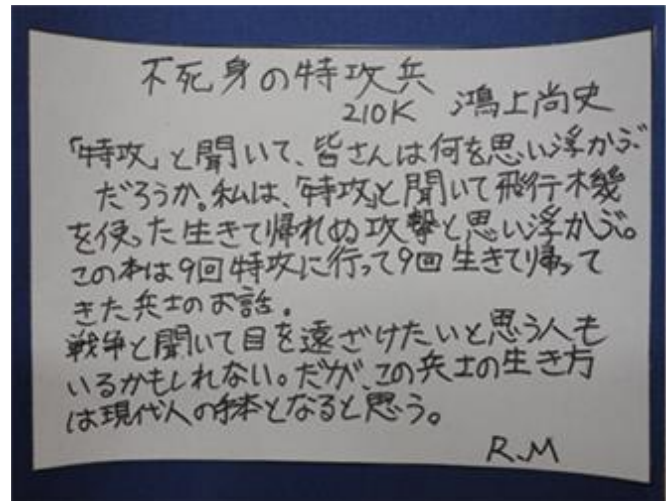 不死身の特攻兵
210K 鴻上尚史
「特攻」と聞いて、皆さんは何を思い浮かぶ
だろうか。私は、「特攻」と聞いて飛行機
を使った生きて帰れぬ攻撃と思い浮かぶ。
この本は9回特攻に行って9回生きて帰って
きた兵士のお話。
戦争と聞いて目を遠ざけたいと思う人も
いるかもしれない。だが、この兵士の生き方
は現代人の手本となると思う。
R.M